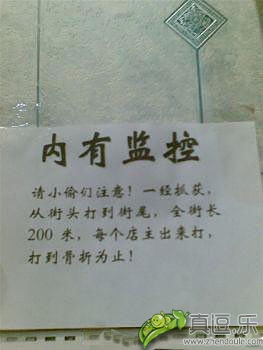 内有监控
请小偷们注意！一经抓获，
从街头打到街尾，全街长
200 米，每个店主出来打，
打到骨折为止！
真逗.乐
www.zhendoule.com